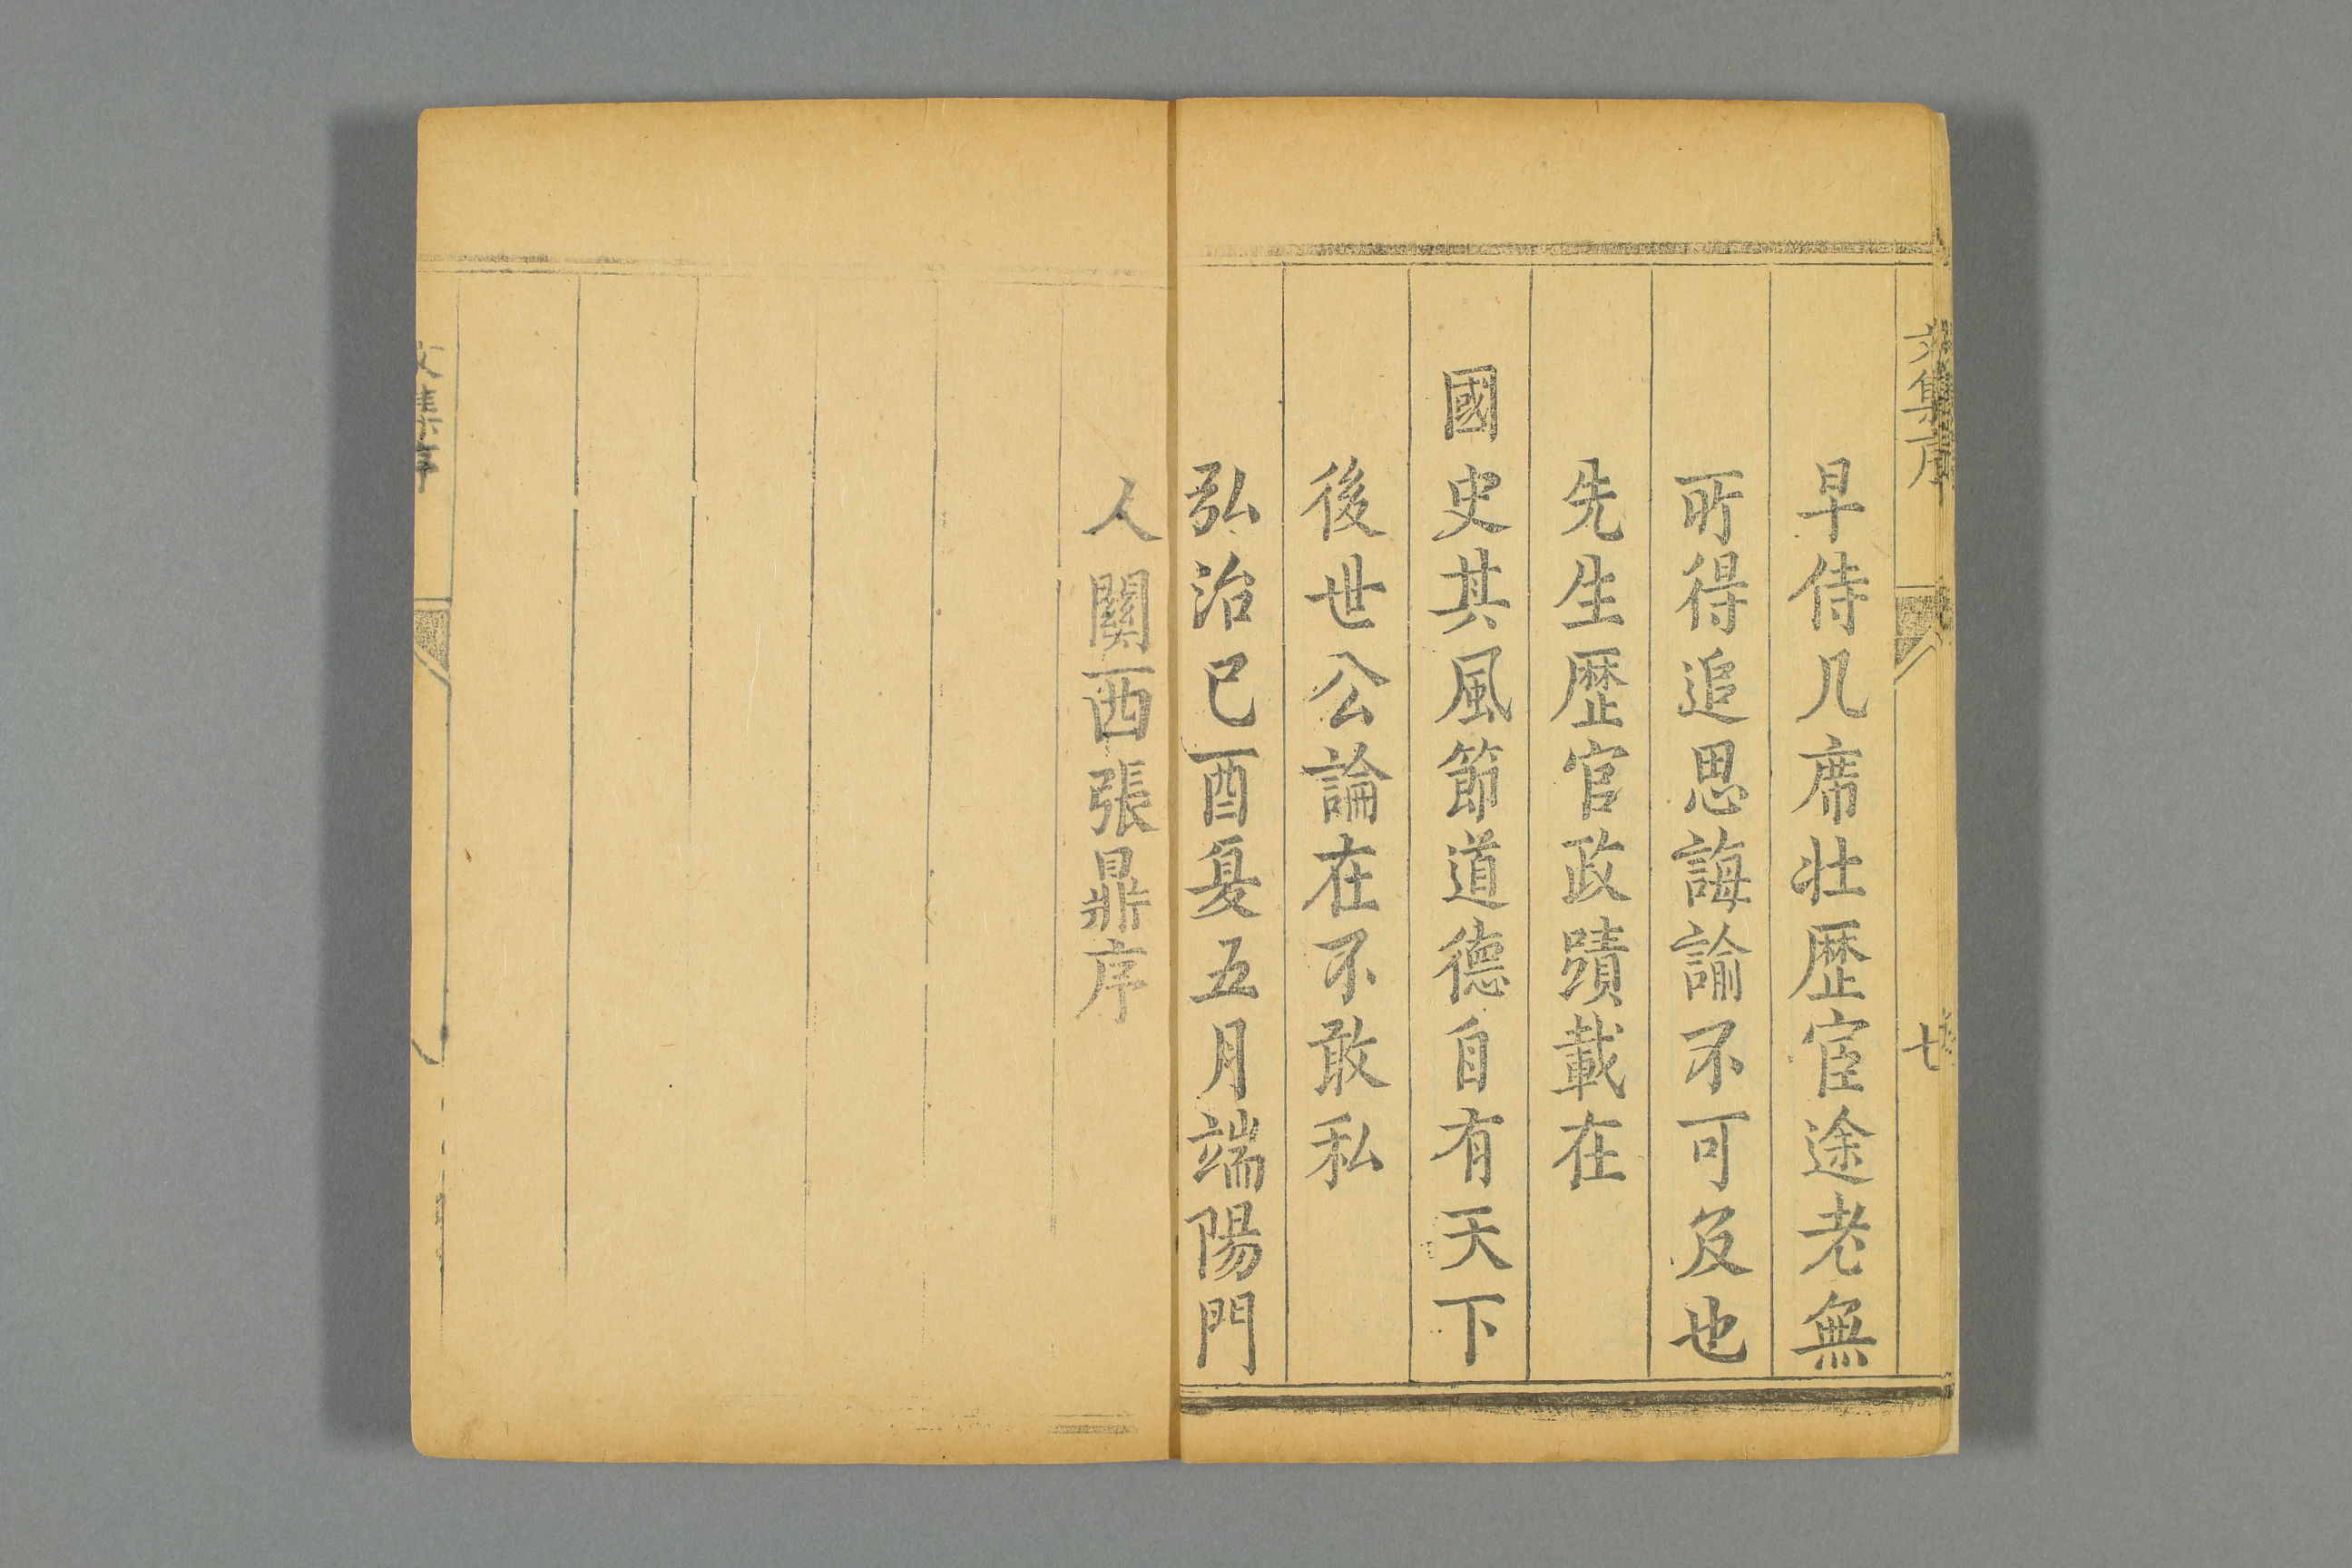 文集序
七
早侍几席壮歴宦途老無
所得追思誨諭不可及也
先生歴官政蹟載在
國史其風節道德自有天下
後世公論在不敢私
弘治己酉夏五月端陽門
人關西張鼎序
文集序